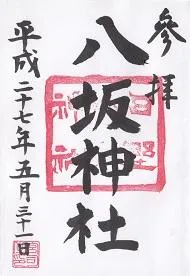 參拝
八坂神社
平成二十七年五月三十一日